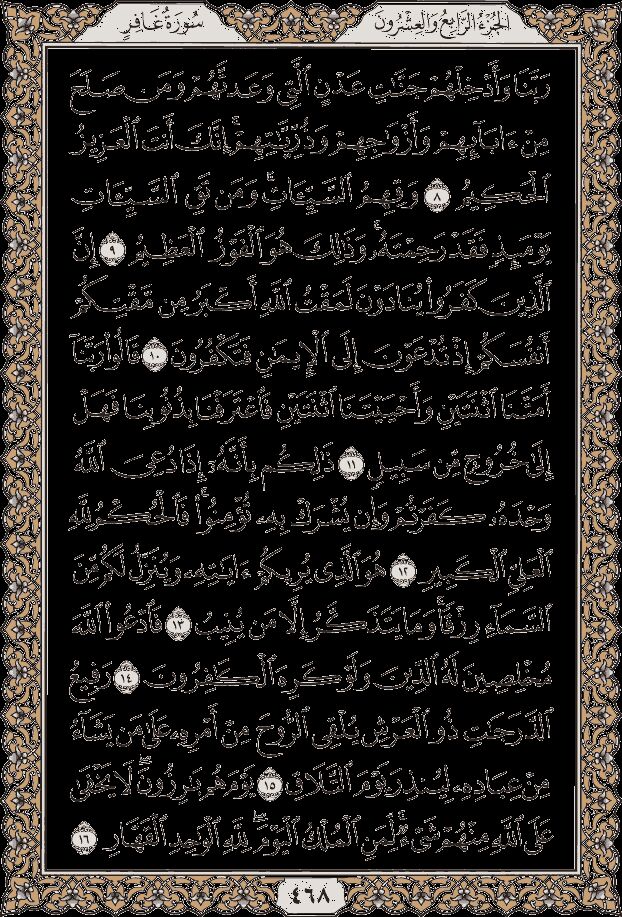 الجزء الرابع والعشرون
سورة غافر
رَبَّنَا وَأَدْخِلْهُمْ جَنَّٰتِ عَدْنٍ ٱلَّتِى وَعَدتَّهُمْ وَمَن صَلَحَ
مِنْ ءَابَآئِهِمْ وَأَزْوَٰجِهِمْ وَذُرِّيَّٰتِهِمْ ۚ إِنَّكَ أَنتَ ٱلْعَزِيزُ
ٱلْحَكِيمُ ٨ وَقِهِمُ ٱلسَّيِّـَٔاتِ ۚ وَمَن تَقِ ٱلسَّيِّـَٔاتِ
يَوْمَئِذٍ فَقَدْ رَحِمْتَهُۥ ۚ وَذَٰلِكَ هُوَ ٱلْفَوْزُ ٱلْعَظِيمُ ٩ إِنَّ
ٱلَّذِينَ كَفَرُوا۟ يُنَادَوْنَ لَمَقْتُ ٱللَّهِ أَكْبَرُ مِن مَّقْتِكُمْ
أَنفُسَكُمْ إِذْ تُدْعَوْنَ إِلَى ٱلْإِيمَٰنِ فَتَكْفُرُونَ ١٠ قَالُوا۟ رَبَّنَآ
أَمَتَّنَا ٱثْنَتَيْنِ وَأَحْيَيْتَنَا ٱثْنَتَيْنِ فَٱعْتَرَفْنَا بِذُنُوبِنَا فَهَلْ
إِلَىٰ خُرُوجٍ مِّن سَبِيلٍ ١١ ذَٰلِكُم بِأَنَّهُۥٓ إِذَا دُعِىَ ٱللَّهُ
وَحْدَهُۥ كَفَرْتُمْ ۖ وَإِن يُشْرَكْ بِهِۦ تُؤْمِنُوا۟ ۚ فَٱلْحُكْمُ لِلَّهِ
ٱلْعَلِىِّ ٱلْكَبِيرِ ١٢ هُوَ ٱلَّذِى يُرِيكُمْ ءَايَٰتِهِۦ وَيُنَزِّلُ لَكُم مِّنَ
ٱلسَّمَآءِ رِزْقًا ۚ وَمَا يَتَذَكَّرُ إِلَّا مَن يُنِيبُ ١٣ فَٱدْعُوا۟ ٱللَّهَ
مُخْلِصِينَ لَهُ ٱلدِّينَ وَلَوْ كَرِهَ ٱلْكَٰفِرُونَ ١٤ رَفِيعُ
ٱلدَّرَجَٰتِ ذُو ٱلْعَرْشِ يُلْقِى ٱلرُّوحَ مِنْ أَمْرِهِۦ عَلَىٰ مَن يَشَآءُ
مِنْ عِبَادِهِۦ لِيُنذِرَ يَوْمَ ٱلتَّلَاقِ ١٥ يَوْمَ هُم بَٰرِزُونَ ۖ لَا يَخْفَىٰ
عَلَى ٱللَّهِ مِنْهُمْ شَىْءٌ ۚ لِّمَنِ ٱلْمُلْكُ ٱلْيَوْمَ ۖ لِلَّهِ ٱلْوَٰحِدِ ٱلْقَهَّارِ ١٦
٤٦٨